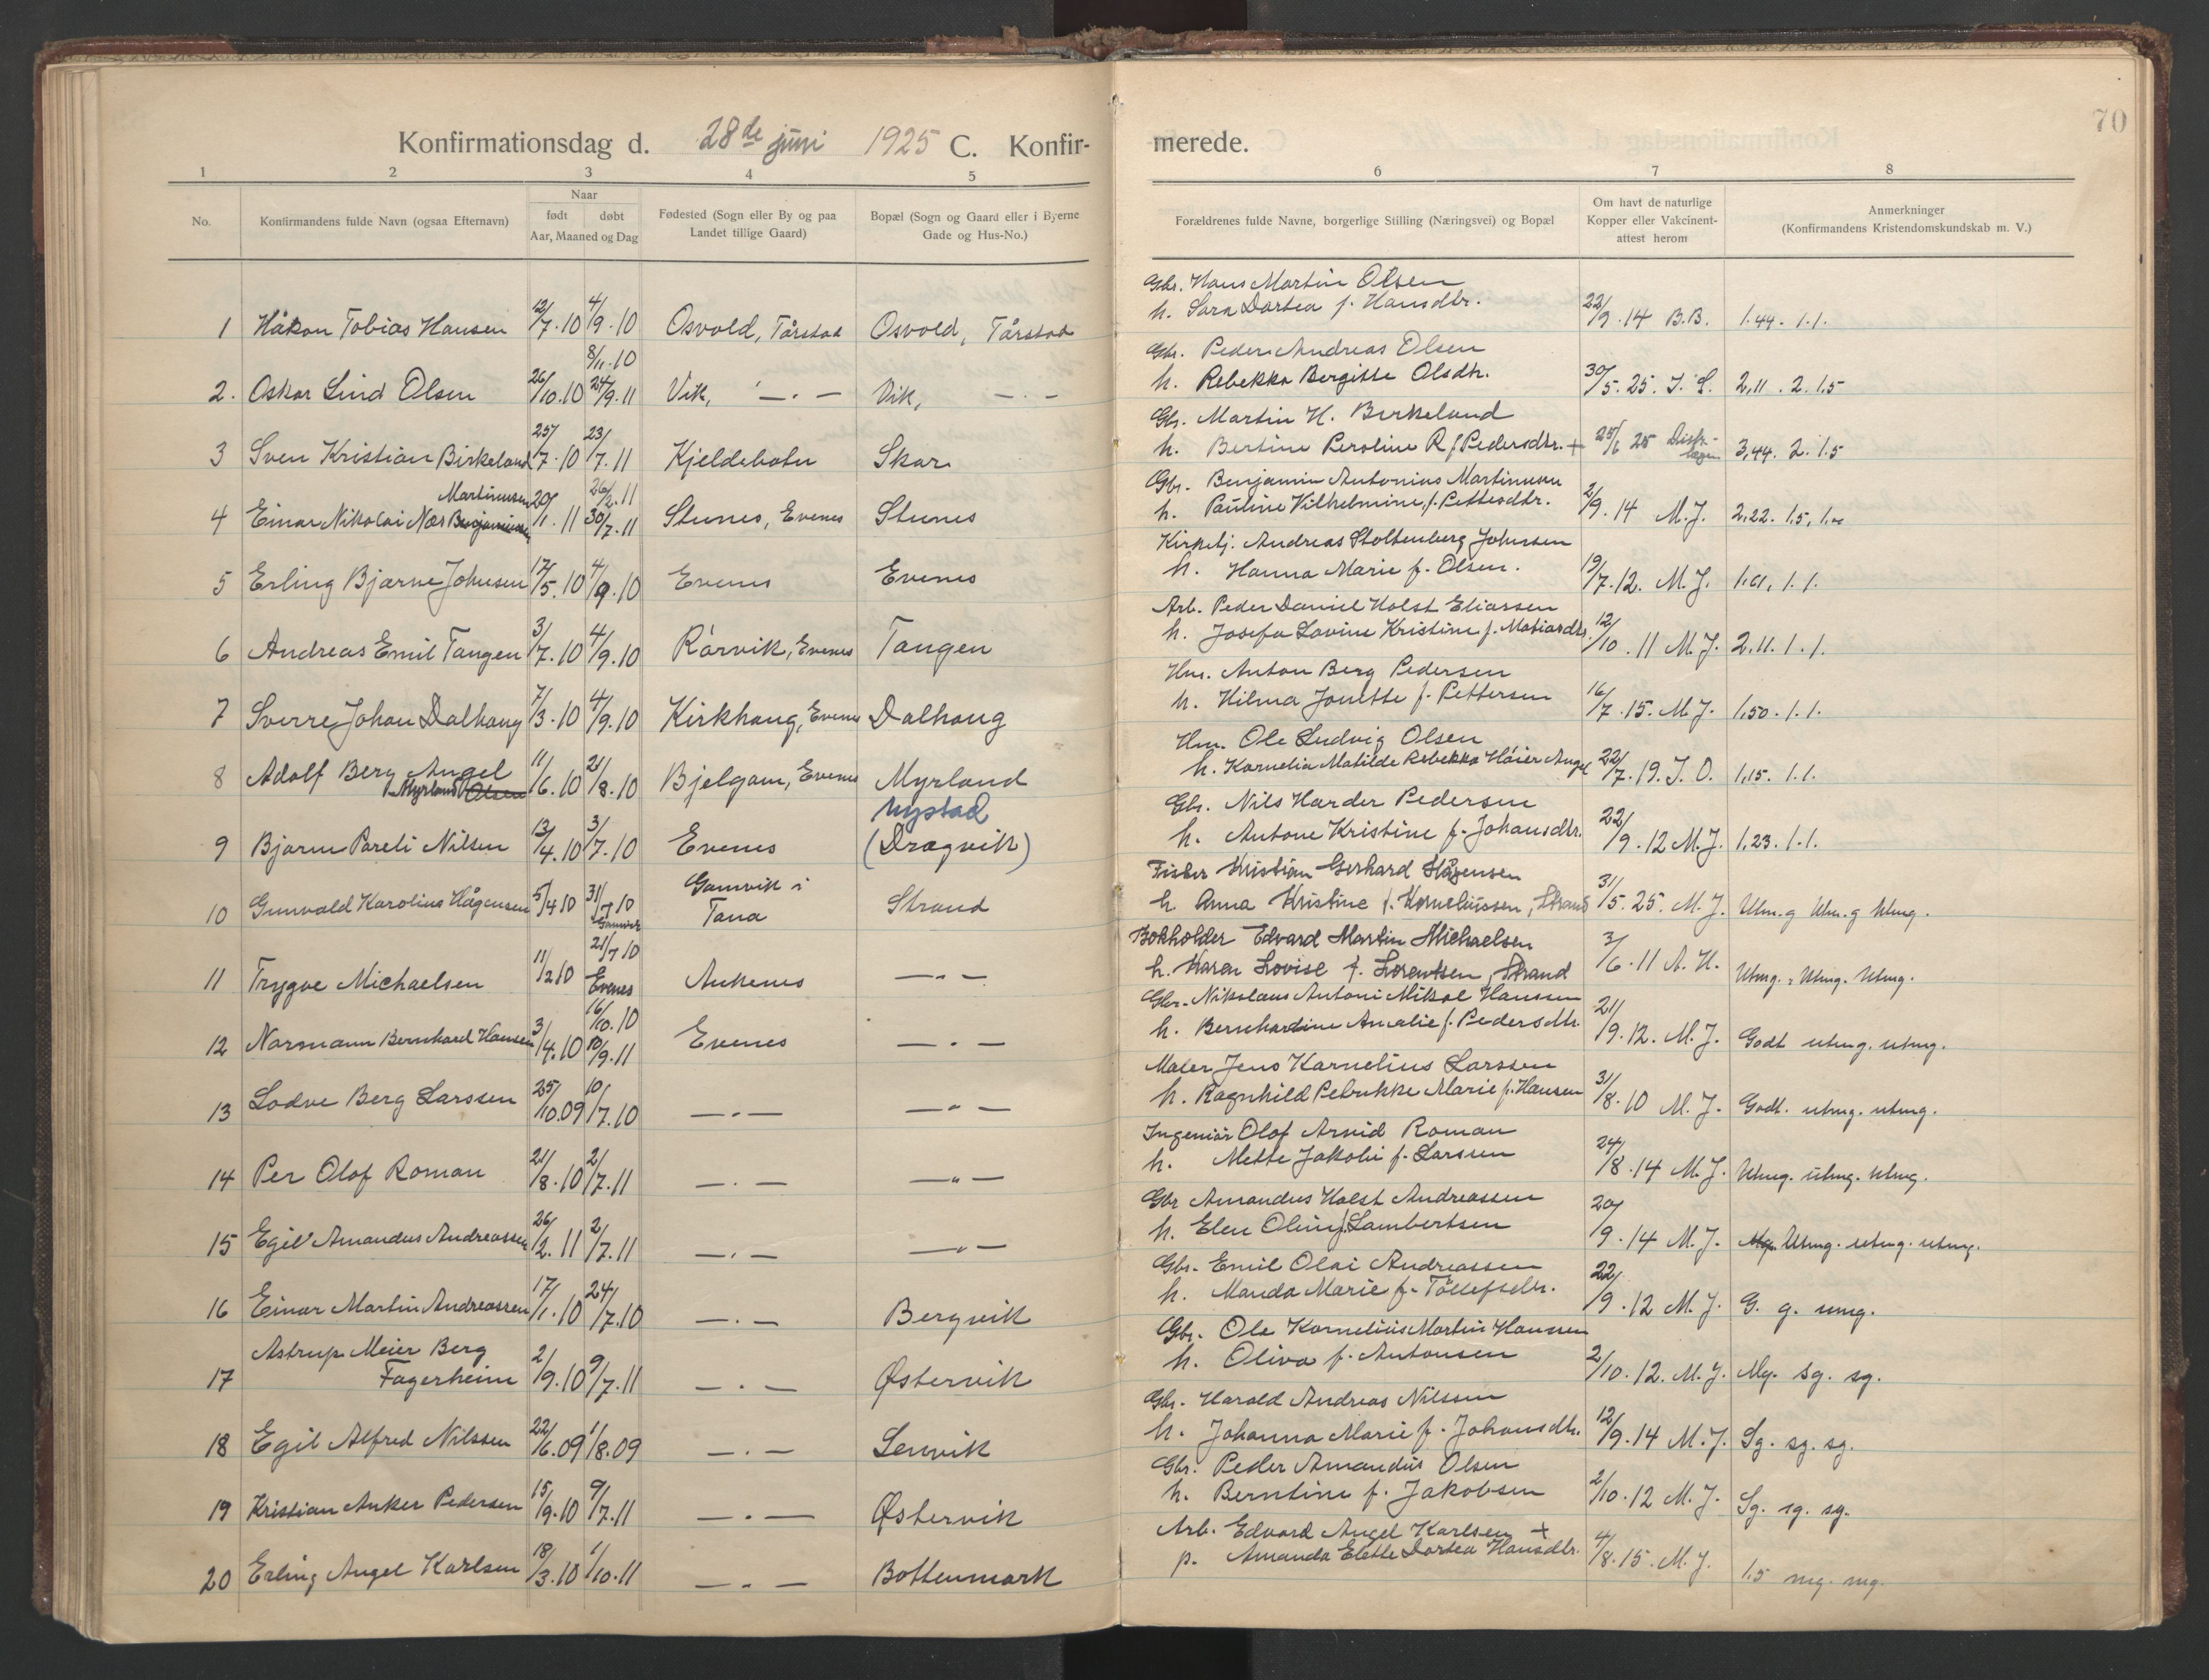 70
Konfirmationsdag d. 28de juni 1925 C. Konfir-
merede.
1 2 3 4 5
6 7 8
No.
Konfirmandens fulde Navn (ogsaa Efternavn)
Naar
født døbt
Aar, Maaned og Dag
Fødested (Sogn eller By og paa
Landet tillige Gaard)
Bopæl (Sogn og Gaard eller i Byerne
Gade og Hus-No.)
Forældrenes fulde Navne, borgerlige Stilling (Næringsvei) og Bopæl
Om havt de naturlige
Kopper eller Vakcinent-
attest herom
Anmerkninger
(Konfirmandens Kristendomskundskab m. V.)
1 Håkon Tobias Hansen 12/7.10 4/9.10 Osvold, Tårstad Osvold, Tårstad
Gbr. Hans Martin Olsen
h. Sara Dortea f. Hansdtr. 22/9.14 B.B. 1.44. 1.1.
8/11.10
2. Oskar Lind Olsen 26/10.10 24/9.11 Vik, — . — Vik, — . —
Gbr. Peder Andreas Olsen
h. Rebekka Bergitte Olsdtr. 30/5.25. J. S. 2,11. 2. 1.5
3 Sven Kristian Birkeland 25/7.10 23/7.11 Kjeldebotn Skar
Gbr. Martin H. Birkeland
h. Bertine Peroline R f. Pedersdtr. + 25/6 25 Distr.-lægen 3,44. 2. 1.5
Martinussen 26/2.11
4 Einar Nikolai Næs Benjaminsen 20/1.11 30/7.11 Stunes, Evenes Stunes
Gbr. Benjamin Antonius Martinussen
h. Pauline Vilhelmine f. Pettersdtr. 2/9.14 M.J. 2,22. 1.5,
5 Erling Bjarne Johnsen 17/5.10 4/9.10 Evenes Evenes
Kirketj. Andreas Stoltenberg Johnsen
h. Hanna Marie f. Olsen. 19/7.12. M.J. 1,61, 1.1.
6 Andreas Emil Tangen 3/7.10 4/9.10 Rørvik, Evenes Tangen
Arb. Peder Daniel Holst Eliassen
h. Josefa Lovine Kristine f. Matiasdtr. 12/10.11 M.J. 2.11. 1.1.
7 Sverre Johan Dalhaug 7/3.10 4/9.10 Kirkhaug, Evenes Dalhaug
Hm. Anton Berg Pedersen
h. Hilma Jonette f. Pettersen 16/7.15. M.J. 1,50. 1.1.
8 Adolf Berg Angel 11/6.10 21/8.10 Bjelgam, Evenes Myrland
Myrland Olsen
Hm. Ole Ludvig Olsen
h. Kornelia Matilde Rebekka Høier Angel 22/7.19. J. O. 1,15. 1.1.
Nystad
9 Bjarne Pareli Nilsen 13/4.10 3/7.10 Evenes (Dragvik)
Gbr. Nils Harder Pedersen
h. Antone Kristine f. Johansdtr. 22/9.12 M.J. 1,23. 1.1.
10 Gunvald Karolius Hågensen 5/4 10 31/7 10 Gamvik Gamvik i Tana Strand
Fisker Kristian Gerhard Hågensen
h. Anna Kristine f. Korneliussen, Strand 31/5.25. M.J. Utm.g Utm.g Utmg.
11 Trygve Michaelsen 11/2 10 21/7 10 Evenes Ankenes — . —
Bokholder Edvard Martin Michaelsen
h. Karen Lovise f. Lorentsen, Strand 3/6.11 A. H. Utmg. Utmg. Utmg.
16/10.10
12 Normann Bernhard Hansen 3/4.10 10/9.11 Evenes — . —
Gbr. Nikolaus Antoni Mikal Hansen
h. Bernhardine Amalie f. Pedersdtr. 21/9.12. M.J. Godt utmg. utmg.
13 Lodve Berg Larssen 25/10.09 10/7.10 — . — — „ —
Maler Jens Karnelius Larssen
h. Ragnhild Petrikke Marie f. Hansen 31/8.10 M.J. Godt. utmg. utmg.
14 Per Olof Roman 21/8.10 2/7.11 — . — — „ —
Ingeniør Olof Arvid Roman
h. Mette Jakobi f. Larsen 24/8.14 M.J. Utmg. utmg. utmg.
15 Egil Amandus Andreassen 26/2.11 2/7.11 — . — — „ —
Gbr Amandus Holst Andreassen
h. Elen Olin f. Lambertsen 20/9.14 M.J. Mg. Utmg. utmg. utmg.
16 Einar Martin Andreassen 17/1.10 24/7.10 — . — Bergvik
Gbr. Emil Olai Andreassen
h. Manda Marie f. Tollefsdtr. 22/9.12 M.J. G. g. umg.
Astrup Meier Berg
17 Fagerheim 2/9.10 9/7.11 — . — Østervik
Gbr. Ole Kornelius Martin Hansen
h. Oliva f. Antonsen 2/10.12. M.J. Mg. sg. sg.
18 Egil Alfred Nilssen 22/6.09 1/8.09 — . — Lenvik
Gbr. Harald Andreas Nilssen
h. Johanna Marie f. Johansdtr. 12/9.14 M.J. Sg. sg. sg.
19 Kristian Anker Pedersen 15/9.10 9/7.11 — . — Østervik
Gbr. Peder Amandus Olsen
h. Berntine f. Jakobsen 2/10.12 M.J. Sg. sg. sg.
20 Erling Angel Karlsen 18/3.10 1/10.11 — . — Bottenmark
Arb. Edvard Angel Karlsen +
p. Amanda Elette Dortea Hansdtr. 4/8.15. M.J. 1.5 mg. mg.